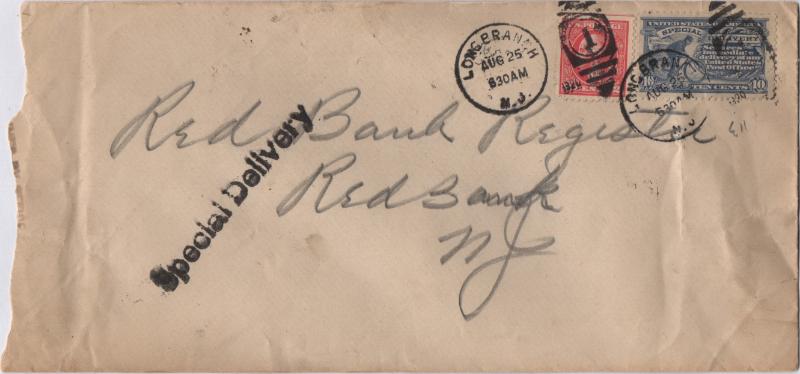 LONG BRANCH
AUG 25
630AM
N.J.
1920
1
UNITED STATES OF AMERICA
SPECIAL DELIVERY
Secures immediate
delivery at any
United States
Post Office
10 TEN CENTS 10
LONG BRANCH
AUG 25
630AM
N.J.
1920
Red Bank Register
Red Bank
NJ
Special Delivery